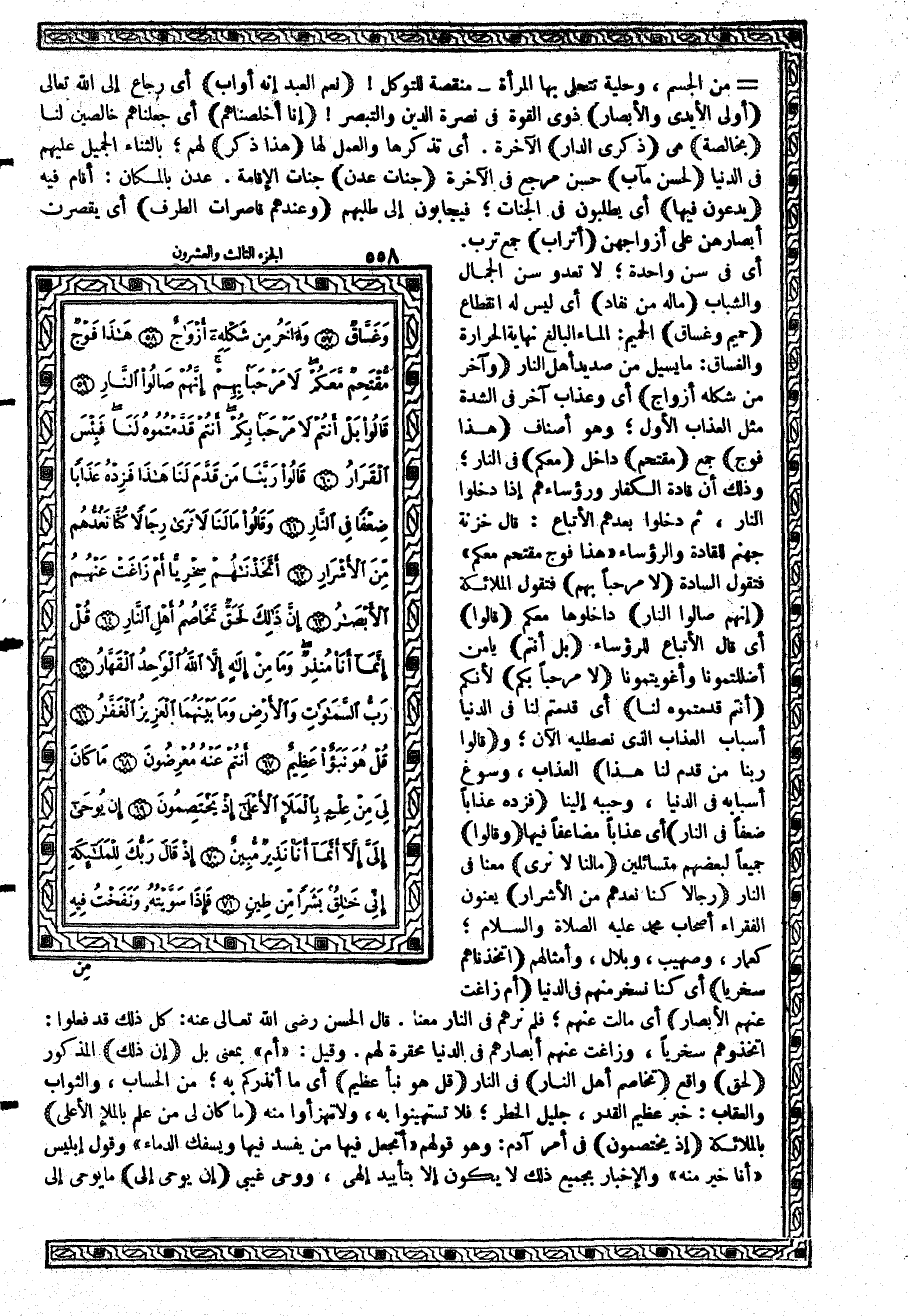 = من الجسم ، وحلية تتحلى بها المرأة ـ منقصة للتوكل ! (نعم العبد إنه أواب) أى رجاع إلى الله تعالى
(أولى الأيدى والأبصار) ذوى القوة فى نصرة الدين والتبصر ! (إنا أخلصناهم) أى جعلناهم خالصين لنا
(بخالصة) هى (ذكرى الدار) الآخرة . أى تذكرها والعمل لها (هذا ذكر) لهم ؛ بالثناء الجميل عليهم
فى الدنيا (لحسن مآب) حسن مرجع فى الآخرة (جنات عدن) جنات الإقامة . عدن بالمكان : أقام فيه
(يدعون فيها) أى يطلبون فى الجنات ؛ فيجابون إلى طلبهم (وعندهم قاصرات الطرف) أى يقصرن
أبصارهن على أزواجهن (أتراب) جمع ترب.
أى فى سن واحدة ؛ لا تعدو سن الجمال
والشباب (ماله من نفاد) أى ليس له انقطاع
(حميم وغساق) الحميم: الماء البالغ نهاية الحرارة
والغساق: مايسيل من صديد أهل النار (وآخر
من شكله أزواج) أى وعذاب آخر فى الشدة
مثل العذاب الأول ؛ وهو أصناف (هذا
فوج) جمع (مقتحم) داخل (معكم) فى النار ؛
وذلك أن قادة الكفار ورؤساءهم إذا دخلوا
النار ، ثم دخلوا بعدهم الأتباع : قال خزنة
جهنم للقادة والرؤساء «هذا فوج مقتحم معكم»
فتقول السادة (لا مرحباً بهم) فتقول الملائكة
(إنهم صالوا النار) داخلوها معكم (قالوا)
أى قال الأتباع للرؤساء (بل أنتم) يامن
أضللتمونا وأغويتمونا (لا مرحباً بكم) لأنكم
(أنتم قدمتموه لنا) أى قدمتم لنا فى الدنيا
أسباب العذاب الذى نصطليه الآن ؛ و(قالوا
ربنا من قدم لنا هذا) العذاب ، وسوغ
أسبابه فى الدنيا ، وحببه إلينا (فزده عذاباً
ضعفاً فى النار) أى عذاباً مضاعفاً فيها (وقالوا)
جميعاً لبعضهم متسائلين (مالنا لا نرى) معنا فى
النار (رجالا كنا نعدهم من الأشرار) يعنون
الفقراء أصحاب محمد عليه الصلاة والسلام ؛
كعمار ، وصهيب ، وبلال ، وأمثالهم (اتخذناهم
سخريا) أى كنا نسخر منهم فى الدنيا (أم زاغت
عنهم الأبصار) أى مالت عنهم ؛ فلم نرهم فى النار معنا . قال الحسن رضى الله تعالى عنه: كل ذلك قد فعلوا :
اتخذوهم سخرياً ، وزاغت عنهم أبصارهم فى الدنيا محقرة لهم . وقيل : «أم» بمعنى بل (إن ذلك) المذكور
(لحق) واقع (تخاصم أهل النار) فى النار (قل هو نبأ عظيم) أى ما أنذركم به ؛ من الحساب ، والثواب
والعقاب : خبر عظيم القدر ، جليل الخطر ؛ فلا تستهينوا به ، ولاتهزأوا منه (ما كان لى من علم بالملإ الأعلى)
بالملائكة (إذ يختصمون) فى أمر آدم: وهو قولهم «أتجعل فيها من يفسد فيها ويسفك الدماء» وقول إبليس
«أنا خير منه» والإخبار بجميع ذلك لا يكون إلا بتأييد إلهى ، ووحى غيبى (إن يوحى إلى) مايوحى إلى
٥٥٨ الجزء الثالث والعشرون
وَغَسَّاقٌ ٥٧ وَءَاخَرُ مِن شَكْلِهِۦٓ أَزْوَٰجٌ ٥٨ هَـٰذَا فَوْجٌ
مُّقْتَحِمٌ مَّعَكُمْ ۖ لَا مَرْحَبًا بِهِمْ ۚ إِنَّهُمْ صَالُوا۟ ٱلنَّارِ ٥٩
قَالُوا۟ بَلْ أَنتُمْ لَا مَرْحَبًا بِكُمْ ۖ أَنتُمْ قَدَّمْتُمُوهُ لَنَا ۖ فَبِئْسَ
ٱلْقَرَارُ ٦٠ قَالُوا۟ رَبَّنَا مَن قَدَّمَ لَنَا هَـٰذَا فَزِدْهُ عَذَابًا
ضِعْفًا فِى ٱلنَّارِ ٦١ وَقَالُوا۟ مَا لَنَا لَا نَرَىٰ رِجَالًا كُنَّا نَعُدُّهُم
مِّنَ ٱلْأَشْرَارِ ٦٢ أَتَّخَذْنَـٰهُمْ سِخْرِيًّا أَمْ زَاغَتْ عَنْهُمُ
ٱلْأَبْصَـٰرُ ٦٣ إِنَّ ذَٰلِكَ لَحَقٌّ تَخَاصُمُ أَهْلِ ٱلنَّارِ ٦٤ قُلْ
إِنَّمَآ أَنَا۠ مُنذِرٌ ۖ وَمَا مِنْ إِلَـٰهٍ إِلَّا ٱللَّهُ ٱلْوَٰحِدُ ٱلْقَهَّارُ ٦٥
رَبُّ ٱلسَّمَـٰوَٰتِ وَٱلْأَرْضِ وَمَا بَيْنَهُمَا ٱلْعَزِيزُ ٱلْغَفَّـٰرُ ٦٦
قُلْ هُوَ نَبَؤٌا۟ عَظِيمٌ ٦٧ أَنتُمْ عَنْهُ مُعْرِضُونَ ٦٨ مَا كَانَ
لِىَ مِنْ عِلْمٍۭ بِٱلْمَلَإِ ٱلْأَعْلَىٰٓ إِذْ يَخْتَصِمُونَ ٦٩ إِن يُوحَىٰٓ
إِلَىَّ إِلَّآ أَنَّمَآ أَنَا۠ نَذِيرٌ مُّبِينٌ ٧٠ إِذْ قَالَ رَبُّكَ لِلْمَلَـٰٓئِكَةِ
إِنِّى خَـٰلِقٌۢ بَشَرًا مِّن طِينٍ ٧١ فَإِذَا سَوَّيْتُهُۥ وَنَفَخْتُ فِيهِ
مِن